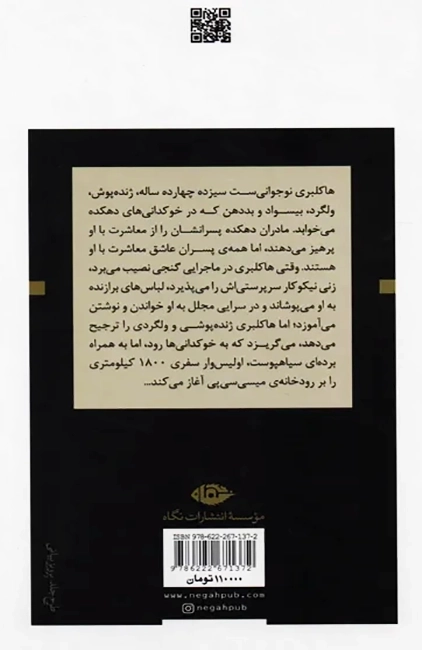 هاکلبری نوجوانی‌ست سیزده چهارده ساله، ژنده‌پوش،
ولگرد، بیسواد و بددهن که در خوکدانی‌های دهکده
می‌خوابد. مادران دهکده پسرانشان را از معاشرت با او
پرهیز می‌دهند، اما همه‌ی پسران عاشق معاشرت با او
هستند. وقتی هاکلبری در ماجرایی گنجی نصیب می‌برد،
زنی نیکوکار سرپرستی‌اش را می‌پذیرد، لباس‌های برازنده
به او می‌پوشاند و در سرایی مجلل به او خواندن و نوشتن
می‌آموزد؛ اما هاکلبری ژنده‌پوشی و ولگردی را ترجیح
می‌دهد، می‌گریزد که به خوکدانی‌ها رود، اما به همراه
برده‌ای سیاهپوست، اولیس‌وار سفری ۱۸۰۰ کیلومتری
را بر رودخانه‌ی میسی‌سی‌پی آغاز می‌کند...
مؤسسهٔ انتشارات نگاه
ISBN 978-622-267-137-2
9 786222 671372
۱۱۰۰۰۰ تومان
www.negahpub.com
negahpub